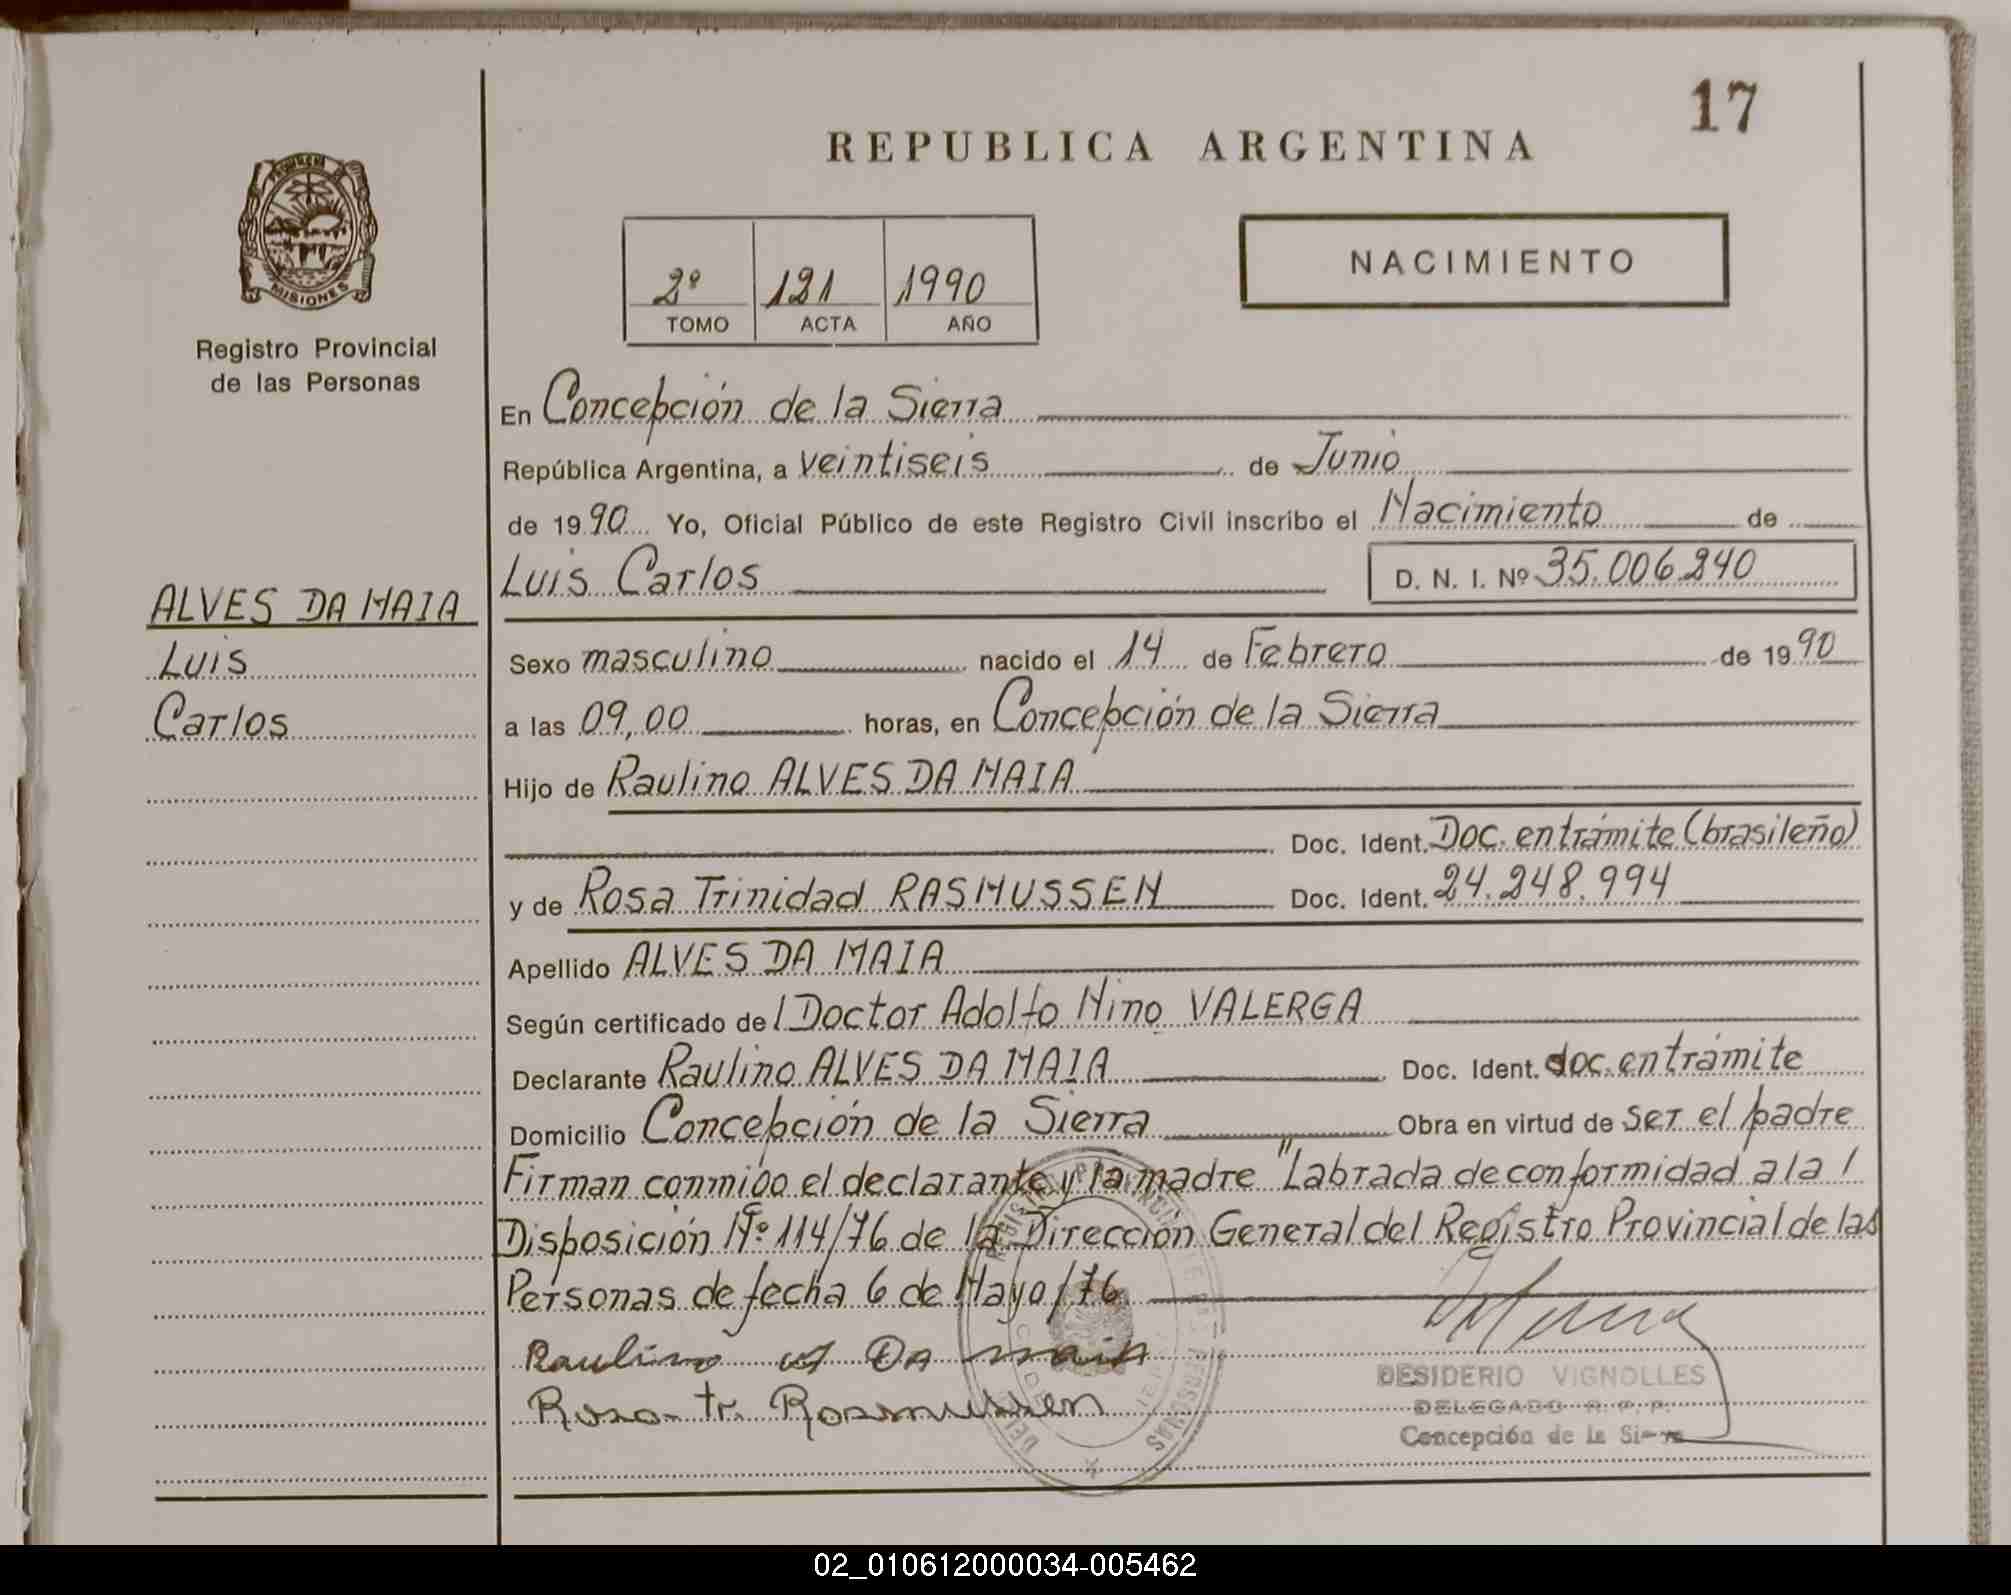 17
REPUBLICA ARGENTINA
MISIONES
Registro Provincial
de las Personas
2º 121 1990
TOMO ACTA AÑO
NACIMIENTO
En Concepción de la Sierra
República Argentina, a veintiseis de Junio
de 1990 Yo, Oficial Público de este Registro Civil inscribo el Nacimiento de
Luis Carlos D. N. I. Nº 35.006.240
ALVES DA MAIA
Luis
Carlos
Sexo masculino nacido el 14 de Febrero de 1990
a las 09,00 horas, en Concepción de la Sierra
Hijo de Raulino ALVES DA MAIA
Doc. Ident. Doc. entrámite (brasileño)
y de Rosa Trinidad RASMUSSEN Doc. Ident. 24.248.994
Apellido ALVES DA MAIA
Según certificado del Doctor Adolfo Nino VALERGA
Declarante Raulino ALVES DA MAIA Doc. Ident. doc. entrámite
Domicilio Concepción de la Sierra Obra en virtud de ser el padre
Firman conmigo el declarante y la madre "Labrada de conformidad a la /
Disposición Nº 114/76 de la Dirección General del Registro Provincial de las
Personas de fecha 6 de Mayo/76
Raulino A Da maia
Rosa Tr. Rasmussen
DESIDERIO VIGNOLLES
DELEGADO R. P. P.
Concepción de la Sierra
02_010612000034-005462